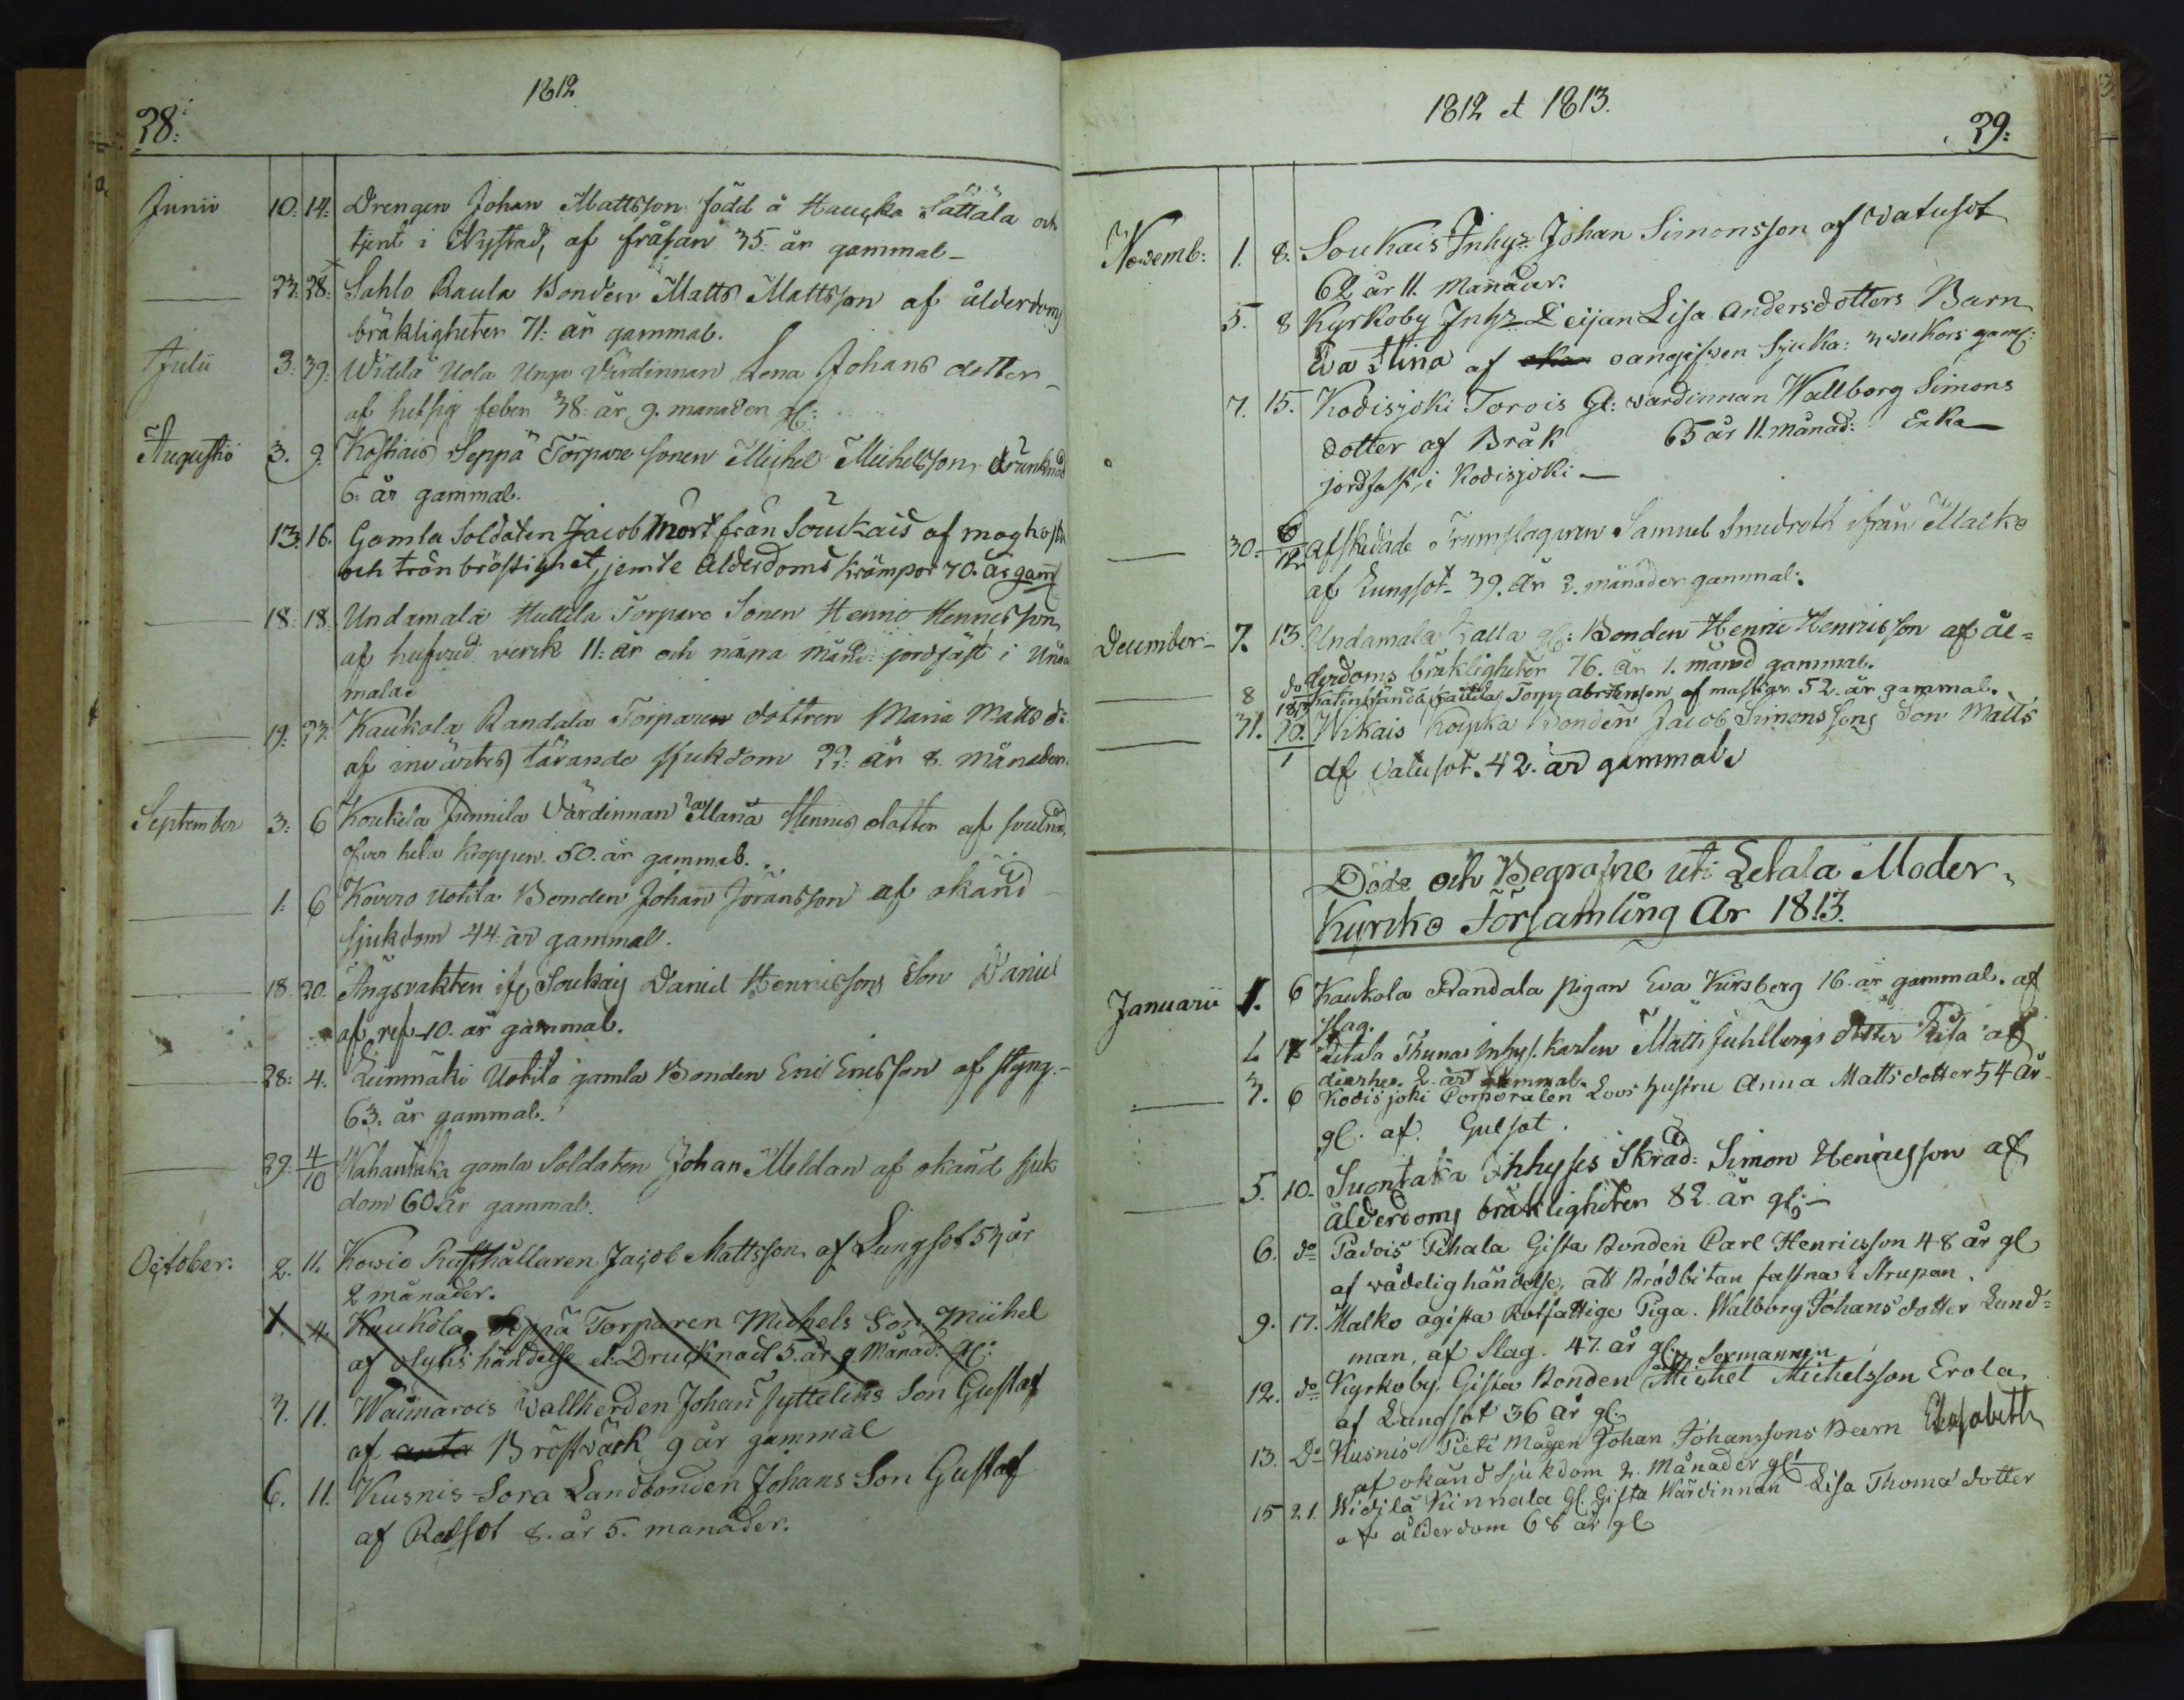 1812
28:
Junii 10. 14. Drengen Johan Mattsson född å Haucka Sättälä och
tjent i Nystad, af fråsan 35. år gammal
23. 28. Sahlo Raula Bonden Matts Mattsson af ålderdoms
bräkligheter 71. år gammal.
Julii 3. Widilä Uola Unga Värdinnan Lena Johans dotter
af hetsig feber 38. år 9. månaden gl:
Augusti 3. 9. Kostiais Seppä Torpare sonen Michel Michelsson, drunknad
6. år gammal.
13. 16. Gamla Soldaten Jacob Mört från Soukais af
och trånbröstighet, jemte ålderdoms krämpor 70. år gaml
18. 18. Undamala Huttila Torpare Sonen Henric Henricsson
af hufvud verk 11. år och några månd: jordfäst i Unda
mala.
19. 23. Kaukola Randala Torparen dottren Maria Matts dr
af invärtes tärande sjukdom 22. år 8. månaden.
September 3. 6 Koukila Junnila Värdinnan Maria Henrics dotter af svulnad
öfver hela kroppen. 50. år gammal.
1. 6 Kovero Uotila Bonden Johan Jöransson af okänd
sjukdom 44. år gammal.
18. 20. Ängsvakten ifr Soukais Daniel Henricssons Son Daniel
af ref 10. år gammal.
28. 4. Leinmäki Uotila gamla Bonden Eric Ericsson af styng.
63. år gammal.
29. 4/10 Wahantaka gamla Soldaten Johan Meldan af okänd sjuk
dom 60 år gammal.
October. 2. 11. Kowio Rusthållaren Jacob Mattsson af Lungsot 53 år
2 månader.
1. 4. Kaukola Seppä Torparen Michels Son Michel
af olyks händelse el. Drucknad 5. år 9 Månad: gl:
3. 11. Wäimarois Vallherden Johan Son Gustaf
af Bröstvärk 9 år gammal
6. 11. Kusnis Sora Landbonden Johans Son Gustaf
af Rödsot 8. år 5. månader.
1812 et 1813.
29:
Novemb: 1. 8. Soukais Inhyz Johan Simonsson af Vatusot
62 år 11. Månader.
5. 8 Kyrkoby Inhz Leijan Lisa Andersdotters Barn
Eva Stina af oangifven Sjuka: 3 veckors gaml:
7. 15. Kodisjoki Torois Gl: värdinnan Wallborg Simons
dotter af Bråk 65 år 11. månad: Enka
jordfäst i Kodisjoki
30. 6/12 afskedade Trumslagaren Samuel Smedroth ifrån Malko
af Lungsot 39. år 2. månader gammal.
December 7. 13 Undamala gl: Bonden Henric Henricsson af ål=
derdoms bräkligheter 76. år 1. månad gammal.
8 do Torpz af 52. år gammal.
31. 10./1 Wikais Koipka Bonden Jacob Simonssons Son Matts
af Vatusot. 42. år gammal.
Döde och Begrafne uti Letala Moder
Kyrko Församling År 1813.
Januarii 1. 6 Kaukola Randala pigan Eva Kirsberg 16. år gammal. af
slag.
2. 17 Letala Thunas Inhys. karlen Matts Juhlbergs dotter Lisa af
diarhee. 2. år gammal.
3. 6 Kodisjoki Corporalen Loos hustru Anna Matts dotter 54 år
gl. af Gulsot.
5. 10. Suontaka Inhyses Skräd: Simon Henricsson af
ålderdoms bräkligheter 82. år gl:
6. do Padois Pihala Gifta Bonden Carl Henricsson 48 år gl
af vådelig händelse, att Brödbitan fastna i Strupan.
9. 17. Malko ogifta Rotfattige Piga. Walborg Johans dotter Lund=
man, af Slag. 47. år gl.
12. do Kyrkoby. Gifta Bonden och Sexmannen Michel Michelsson Erola
af Lungsot 36 år gl.
13. Do Kusnis Pieti Mågen Johan Johanssons Barn Elisabeth
af okänd sjukdom 2. Månader gl.
15 21. Widilä Kinnala Gl. Gifta Wärdinnan Lisa Thomæ dotter
af ålderdom 68 år gl